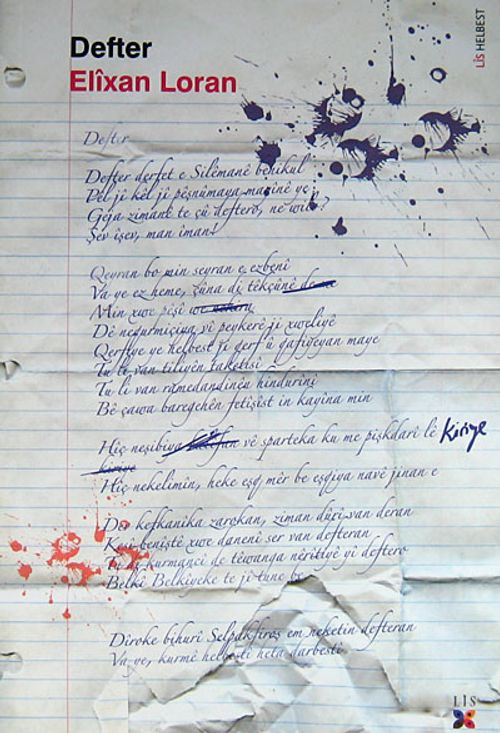 Defter
Elîxan Loran
LîS HELBEST
Defter
Defter derfet e Silêmanê behikul
Pel ji kêl ji pêşnûmaya marînê ye
Geja zimanê te çû deftero, ne wilo?
Şev îşev, man îman!
Qeyran bo min seyran e ezbenî
Va ye ez heme, çûna di têkçûnê de me
Min xwe pêşî
Dê negurmiçiya vî peykerê ji xweliyê
Qerfiye ye helbest ji qerf û qafiyeyan maye
Tu te van tiliyên taketîsî
Tu li van ramedandinên hindurînî
Bê çawa baregehên fetîşîst in kayîna min
Hîç neşibiya vê sparteka ku me pişkdarî lê kiriye
kiriye
Hîç nekelimin, heke eşq mêr be eşqiya navê jinan e
Der kefkanîka zarokan, ziman dûçî van deran
benîştê xwe danenî ser van defteran
Tu û kurmancî de têwanga nêrîtiyê yî deftero
Belkê Belkîyeke te jî tune be
Dîroke bihurî Selpakfiroş em neketin defteran
Va ye, kurmê helbestî heta darbestî
LîS